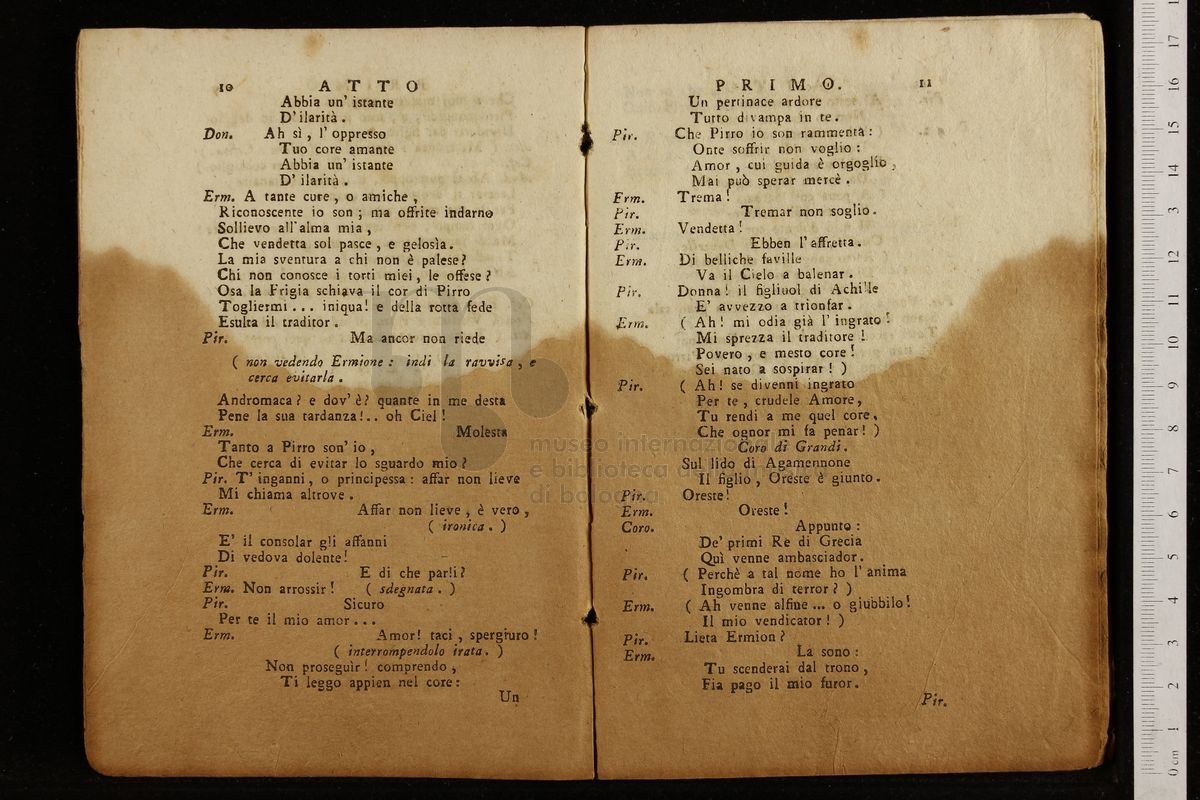 10 ATTO
Abbia un' istante
D'ilarità.
Don. Ah sì, l'oppresso
Tuo core amante
Abbia un' istante
D'ilarità.
Erm. A tante cure, o amiche,
Riconoscente io son; ma offrite indarno
Sollievo all'alma mia,
Che vendetta sol pasce, e gelosìa.
La mia sventura a chi non è palese?
Chi non conosce i torti miei, le offese?
Osa la Frigia schiava il cor di Pirro
Togliermi... iniqua! e della rotta fede
Esulta il traditor.
Pir. Ma ancor non riede
( non vedendo Ermione: indi la ravvisa, e
cerca evitarla.
Andromaca? e dov'è? quante in me desta
Pene la sua tardanza!.. oh Ciel!
Erm. Molesta
Tanto a Pirro son' io,
Che cerca di evitar lo sguardo mio?
Pir. T'inganni, o principessa: affar non lieve
Mi chiama altrove.
Erm. Affar non lieve, è vero,
( ironica. )
E' il consolar gli affanni
Di vedova dolente!
Pir. E di che parli?
Erm. Non arrossir! ( sdegnata. )
Pir. Sicuro
Per te il mio amor...
Erm. Amor! taci, spergiuro!
( interrompendolo irata. )
Non proseguìr! comprendo,
Ti leggo appien nel core:
Un
PRIMO. 11
Un pertinace ardore
Tutto divampa in te.
Pir. Che Pirro io son rammenta:
Onte soffrir non voglio:
Amor, cui guida è orgoglio,
Mai può sperar mercè.
Erm. Trema!
Pir. Tremar non soglio.
Erm. Vendetta!
Pir. Ebben l'affretta.
Erm. Di belliche faville
Va il Cielo a balenar.
Pir. Donna! il figliuol di Achille
E' avvezzo a trionfar.
Erm. ( Ah! mi odia già l'ingrato!
Mi sprezza il traditore!
Povero, e mesto core!
Sei nato a sospirar! )
Pir. ( Ah! se divenni ingrato
Per te, crudele Amore,
Tu rendi a me quel core,
Che ognor mi fa penar! )
Coro di Grandi.
Sul lido di Agamennone
Il figlio, Oreste è giunto.
Pir. Oreste!
Erm. Oreste!
Coro. Appunto:
De' primi Re di Grecia
Quì venne ambasciador.
Pir. ( Perchè a tal nome ho l'anima
Ingombra di terror? )
Erm. ( Ah venne alfine... o giubbilo!
Il mio vendicator! )
Pir. Lieta Ermion?
Erm. La sono:
Tu scenderai dal trono,
Fia pago il mio furor.
Pir.
museo internazionale
e biblioteca della musica
di bologna
17
16
15
14
13
12
11
10
9
8
7
6
5
4
3
2
1
0 cm